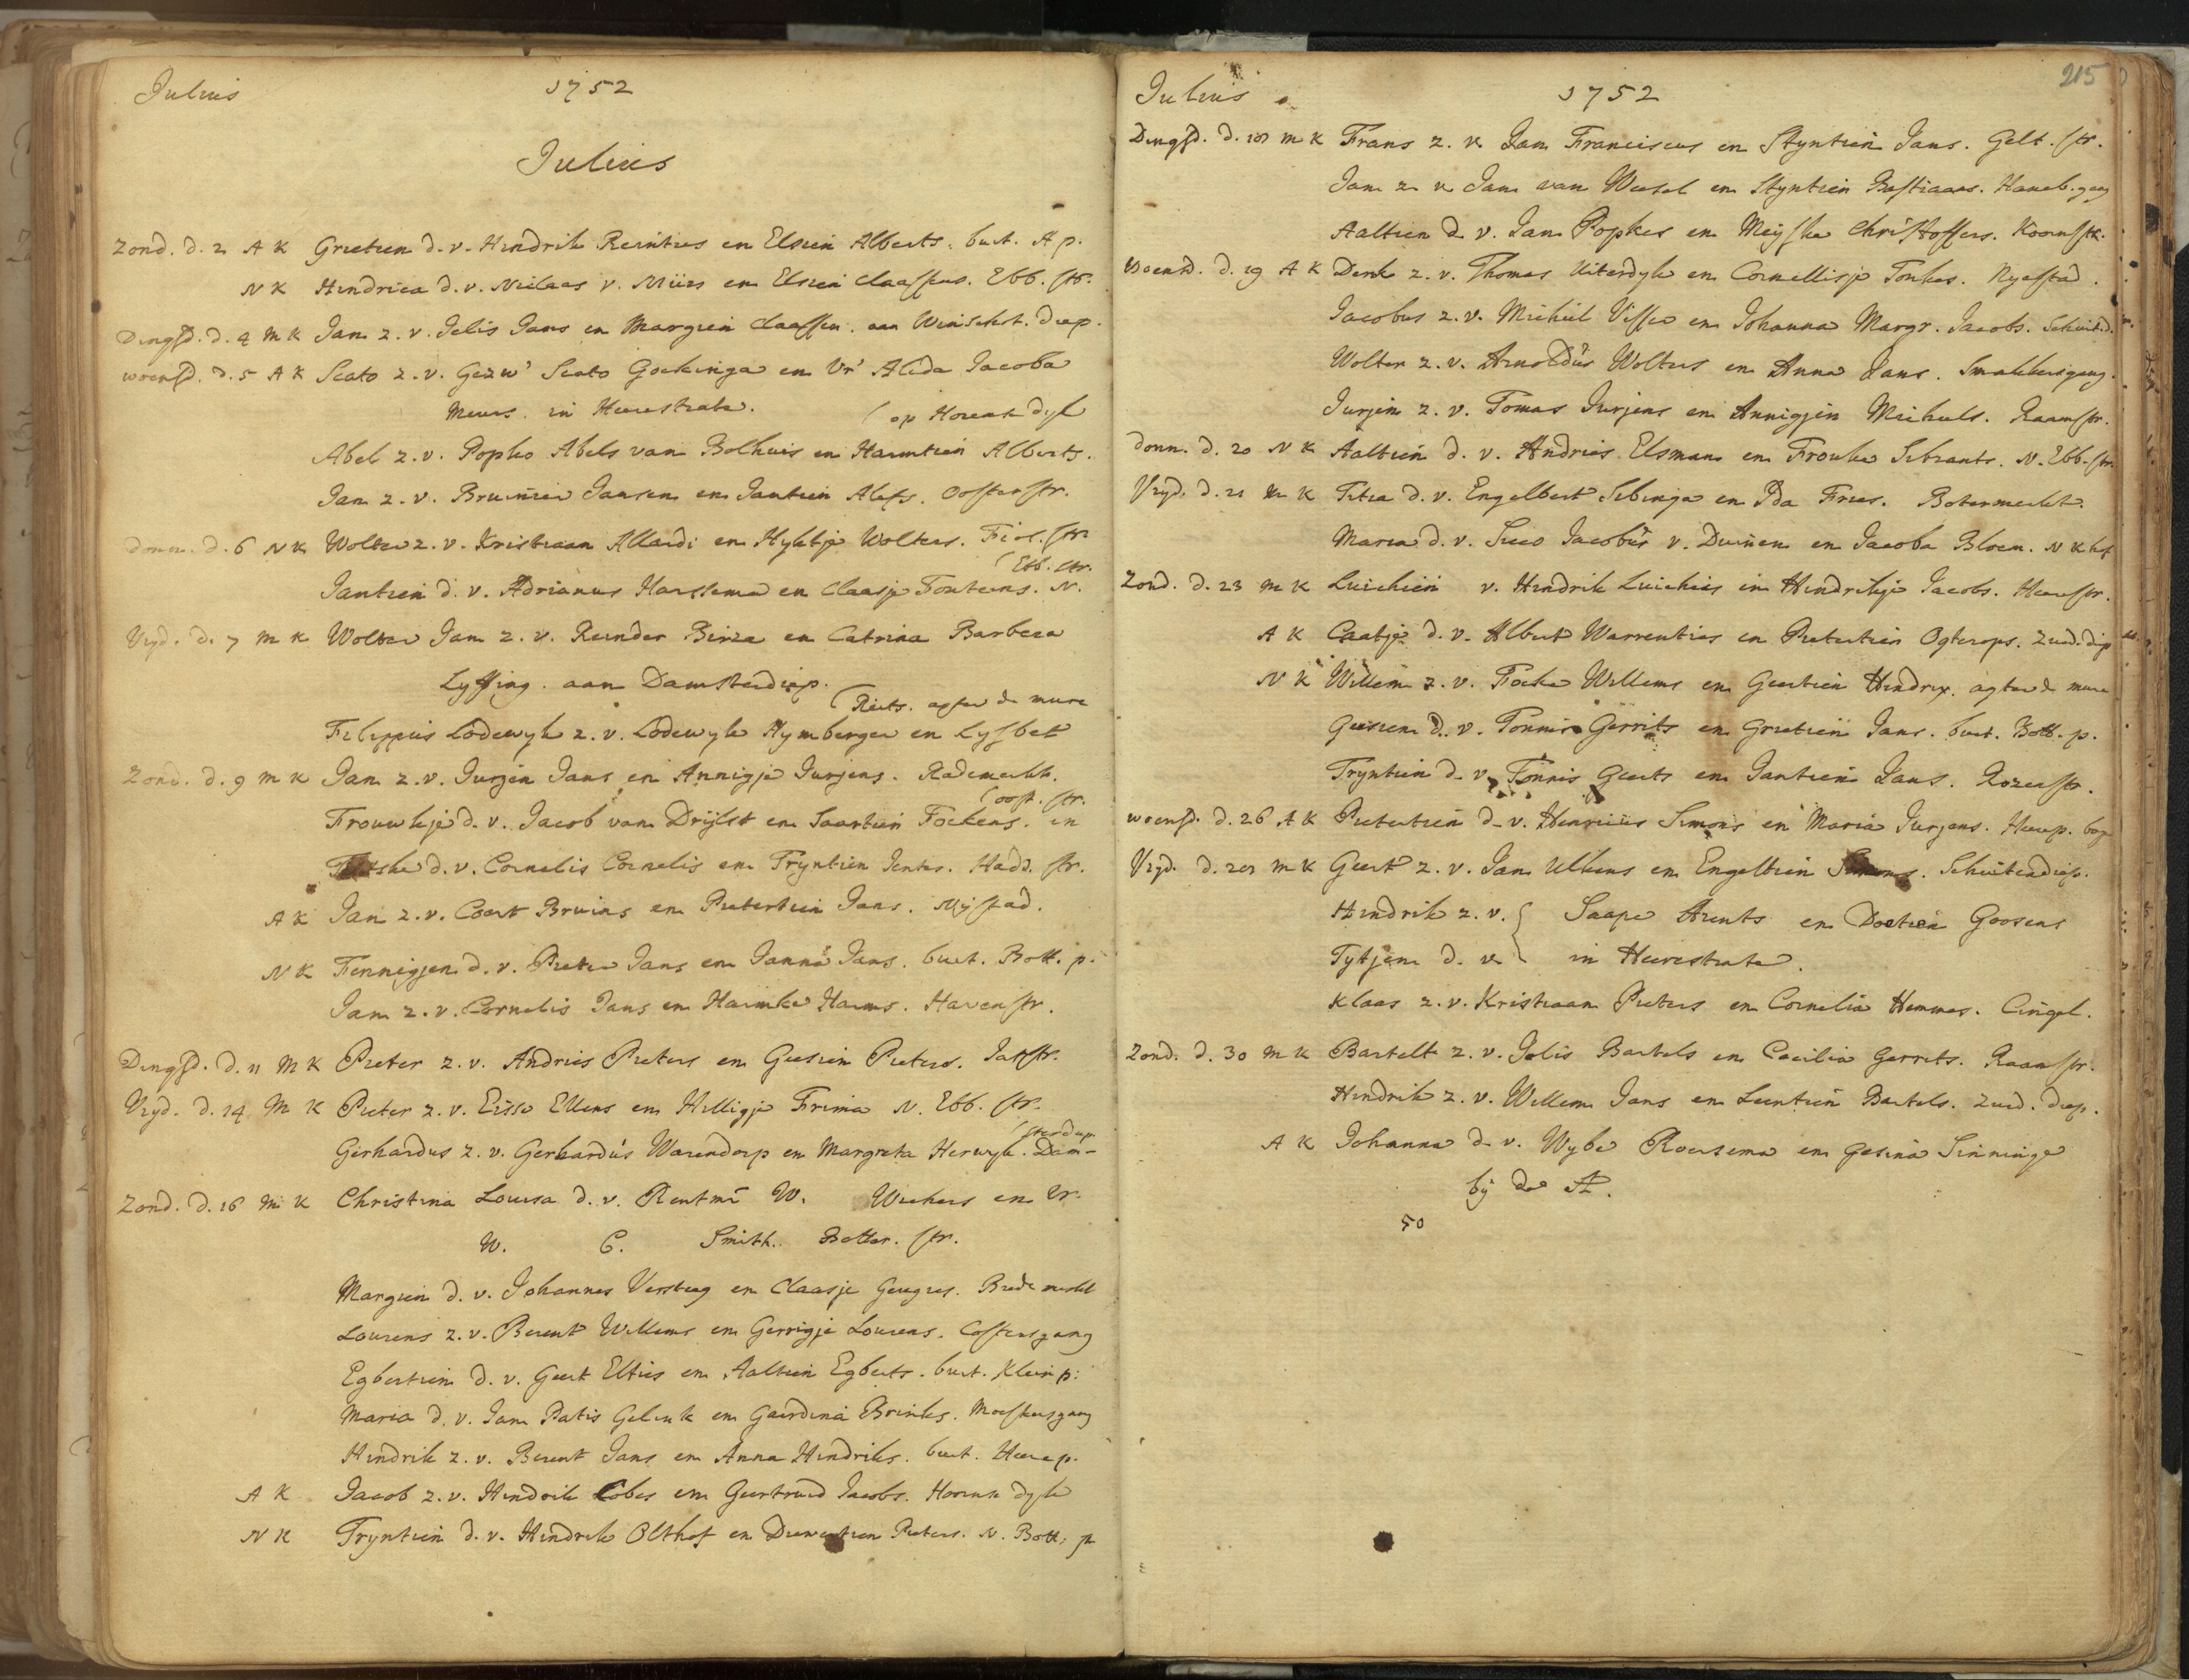 Julius 1752
Julius
Zond. d. 2 A K Grietien d. v. Hindrik Reinties en Elsien Alberts. buit. A p.
N K Hindrica d. v. Niclaas v. Miirs en Elsien Claassens. Ebb. str.
Dingsd. d. 4 M K Jan z. v. Jelis Jans en Margien Claassen. aan Winschot. diep.
woensd. d. 5 A K Scato z. v. Gezw' Scato Gockinga en Vr' Alida Jacoba
Meurs. in Heerestrate. (op Horensk dyk
Abel z. v. Popko Abels van Bolhuis en Harmtien Alberts.
Jan z. v. Jansen en Jantien Alefs. Oosterstr.
Donn. d. 6 N K Wolter z. v. Kristiaan Allardi en Hyktje Wolters. Fiol. str.
(Ebb. str.
Jantien d. v. Adrianus Harssema en Claasje Fonteens. N.
Vryd. d. 7 M K Wolter Jan z. v. Reinder Birza en Catrina Barbera
Lyssing. aan Damsterdiep.
(Riets. agter de mure
Filippus Lodewyk z. v. Lodewyk Hymberger en Lysbet
Zond. d. 9 M K Jan z. v. Jurjen Jans en Annigje Jurjens. Rademerkt.
(oost. str.
Frouwkje d. v. Jacob van Drijlst en Saartien Fockens. in
d. v. Cornelis Cornelis en Tryntien Jentes. Hadd. str.
A K Jan z. v. Coert Bruins en Pietertien Jans. Nystad.
N K Fennigjen d. v. Pieter Jans en Janna Jans. buit. Bott. p.
Jan z. v. Cornelis Jans en Harmke Harms. Havenstr.
Dingsd. d. 11 M K Pieter z. v. Andries Pieters en Geesien Pieters. Jatstr.
Vryd. d. 14 M K Pieter z. v. Eisse Ellens en Hilligje Frima N. Ebb. str.
(sterdiep
Gerhardus z. v. Gerhardus Warendorp en Margreta Herwyk. Dam-
Zond. d. 16 M K Christina Louisa d. v. Rentmr W. Wichers en Vr.
W. C. Smith. Botter. str.
Margien d. v. Johannes Versteeg en Claasje Geugies. Brede merkt
Lourens z. v. Berent Willems en Gerrigje Lourens. Costersgang
Egbertien d. v. Geert Elties en Aaltien Egberts. buit. Klein p.
Maria d. v. Jan Patis Gelink en Gaerdina Brinks. Moeskersgang
Hindrik z. v. Berent Jans en Anna Hindriks. buit. Heere p.
A K Jacob z. v. Hindrik Cobes en Geertruid Jacobs. Hoornse dyk
N K Tryntien d. v. Hindrik Olthof en Diewertien Pieters. N. Bott. p
Julius 1752 215
Dingsd. d. 18 M K Frans z. v. Jan Franciscus en Styntien Jans. Gelt. str.
Jan z. v. Jan van Weesel en Styntien Bastiaans. Haneb. gang
Aaltien d. v. Jan Popkes en Meyska Christoffers. Koornstr.
Woensd. d. 19 A K Derk z. v. Thomas Uiterdyk en Cornellisje Tonkes. Nyestad.
Jacobus z. v. Michiel Visser en Johanna Margr. Jacobs. Schuit. d.
Wolter z. v. Arnoldus Wolters en Anna Jans. Smakkersgang.
Jurjen z. v. Tomas Jurjens en Annigjen Michels. Raamstr.
Donn. d. 20 N K Aaltien d. v. Andries Elsman en Frouke Sibrants. N. Ebb. str.
Vryd. d. 21 M K Titia d. v. Engelbert Sibinga en Ida Fries. Botermerkt.
Maria d. v. Sicco Jacobus v. Duinen en Jacoba Bloem. N K hof
Zond. d. 23 M K Luichien v. Hindrik Luichies en Hindrikje Jacobs. Heerestr.
A K Caatje d. v. Albert Warrenties en Pietertien Ogterops. Zuid. diep
N K Willem z. v. Focke Willems en Geertien Hindrix. agter de mure
Geesien d. v. Tonnis Gerrits en Grietien Jans. buit. Bott. p.
Tryntien d. v. Tonnis Geerts en Jantien Jans. Rozenstr.
woensd. d. 26 A K Pietertien d. v. Henricus Simons en Maria Jurjens. Heerep. bog
Vryd. d. 28 M K Geert z. v. Jan Ulkens en Engeltien Simons. Schuitendiep.
Hindrik z. v. { Saape Arents en Doetien Goosens
Tytjen d. v. } in Heerestrate.
Klaas z. v. Kristiaan Pieters en Cornelia Hemmes. Cingel.
Zond. d. 30 M K Bartelt z. v. Jelis Bartels en Caecilia Gerrits. Raamstr.
Hindrik z. v. Willem Jans en Leentien Bartels. Zuid. diep.
A K Johanna d. v. Wybe Roersema en Gesina Sinninge
bij de A.
50